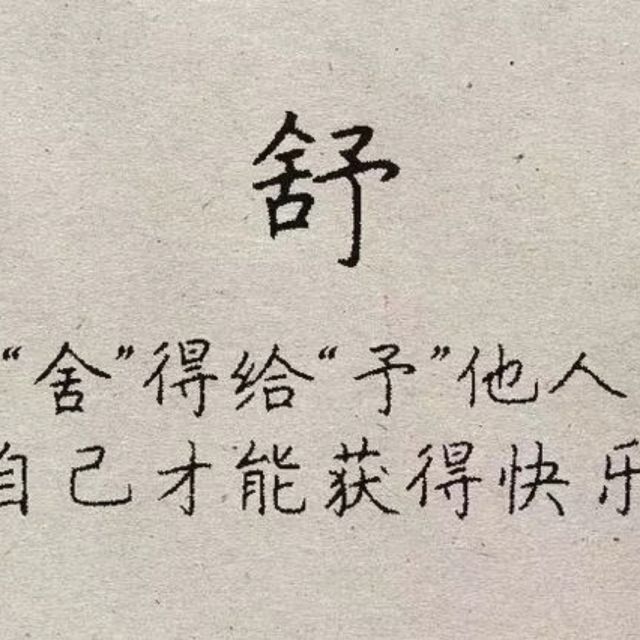 舒
“舍”得给“予”他人
自己才能获得快乐